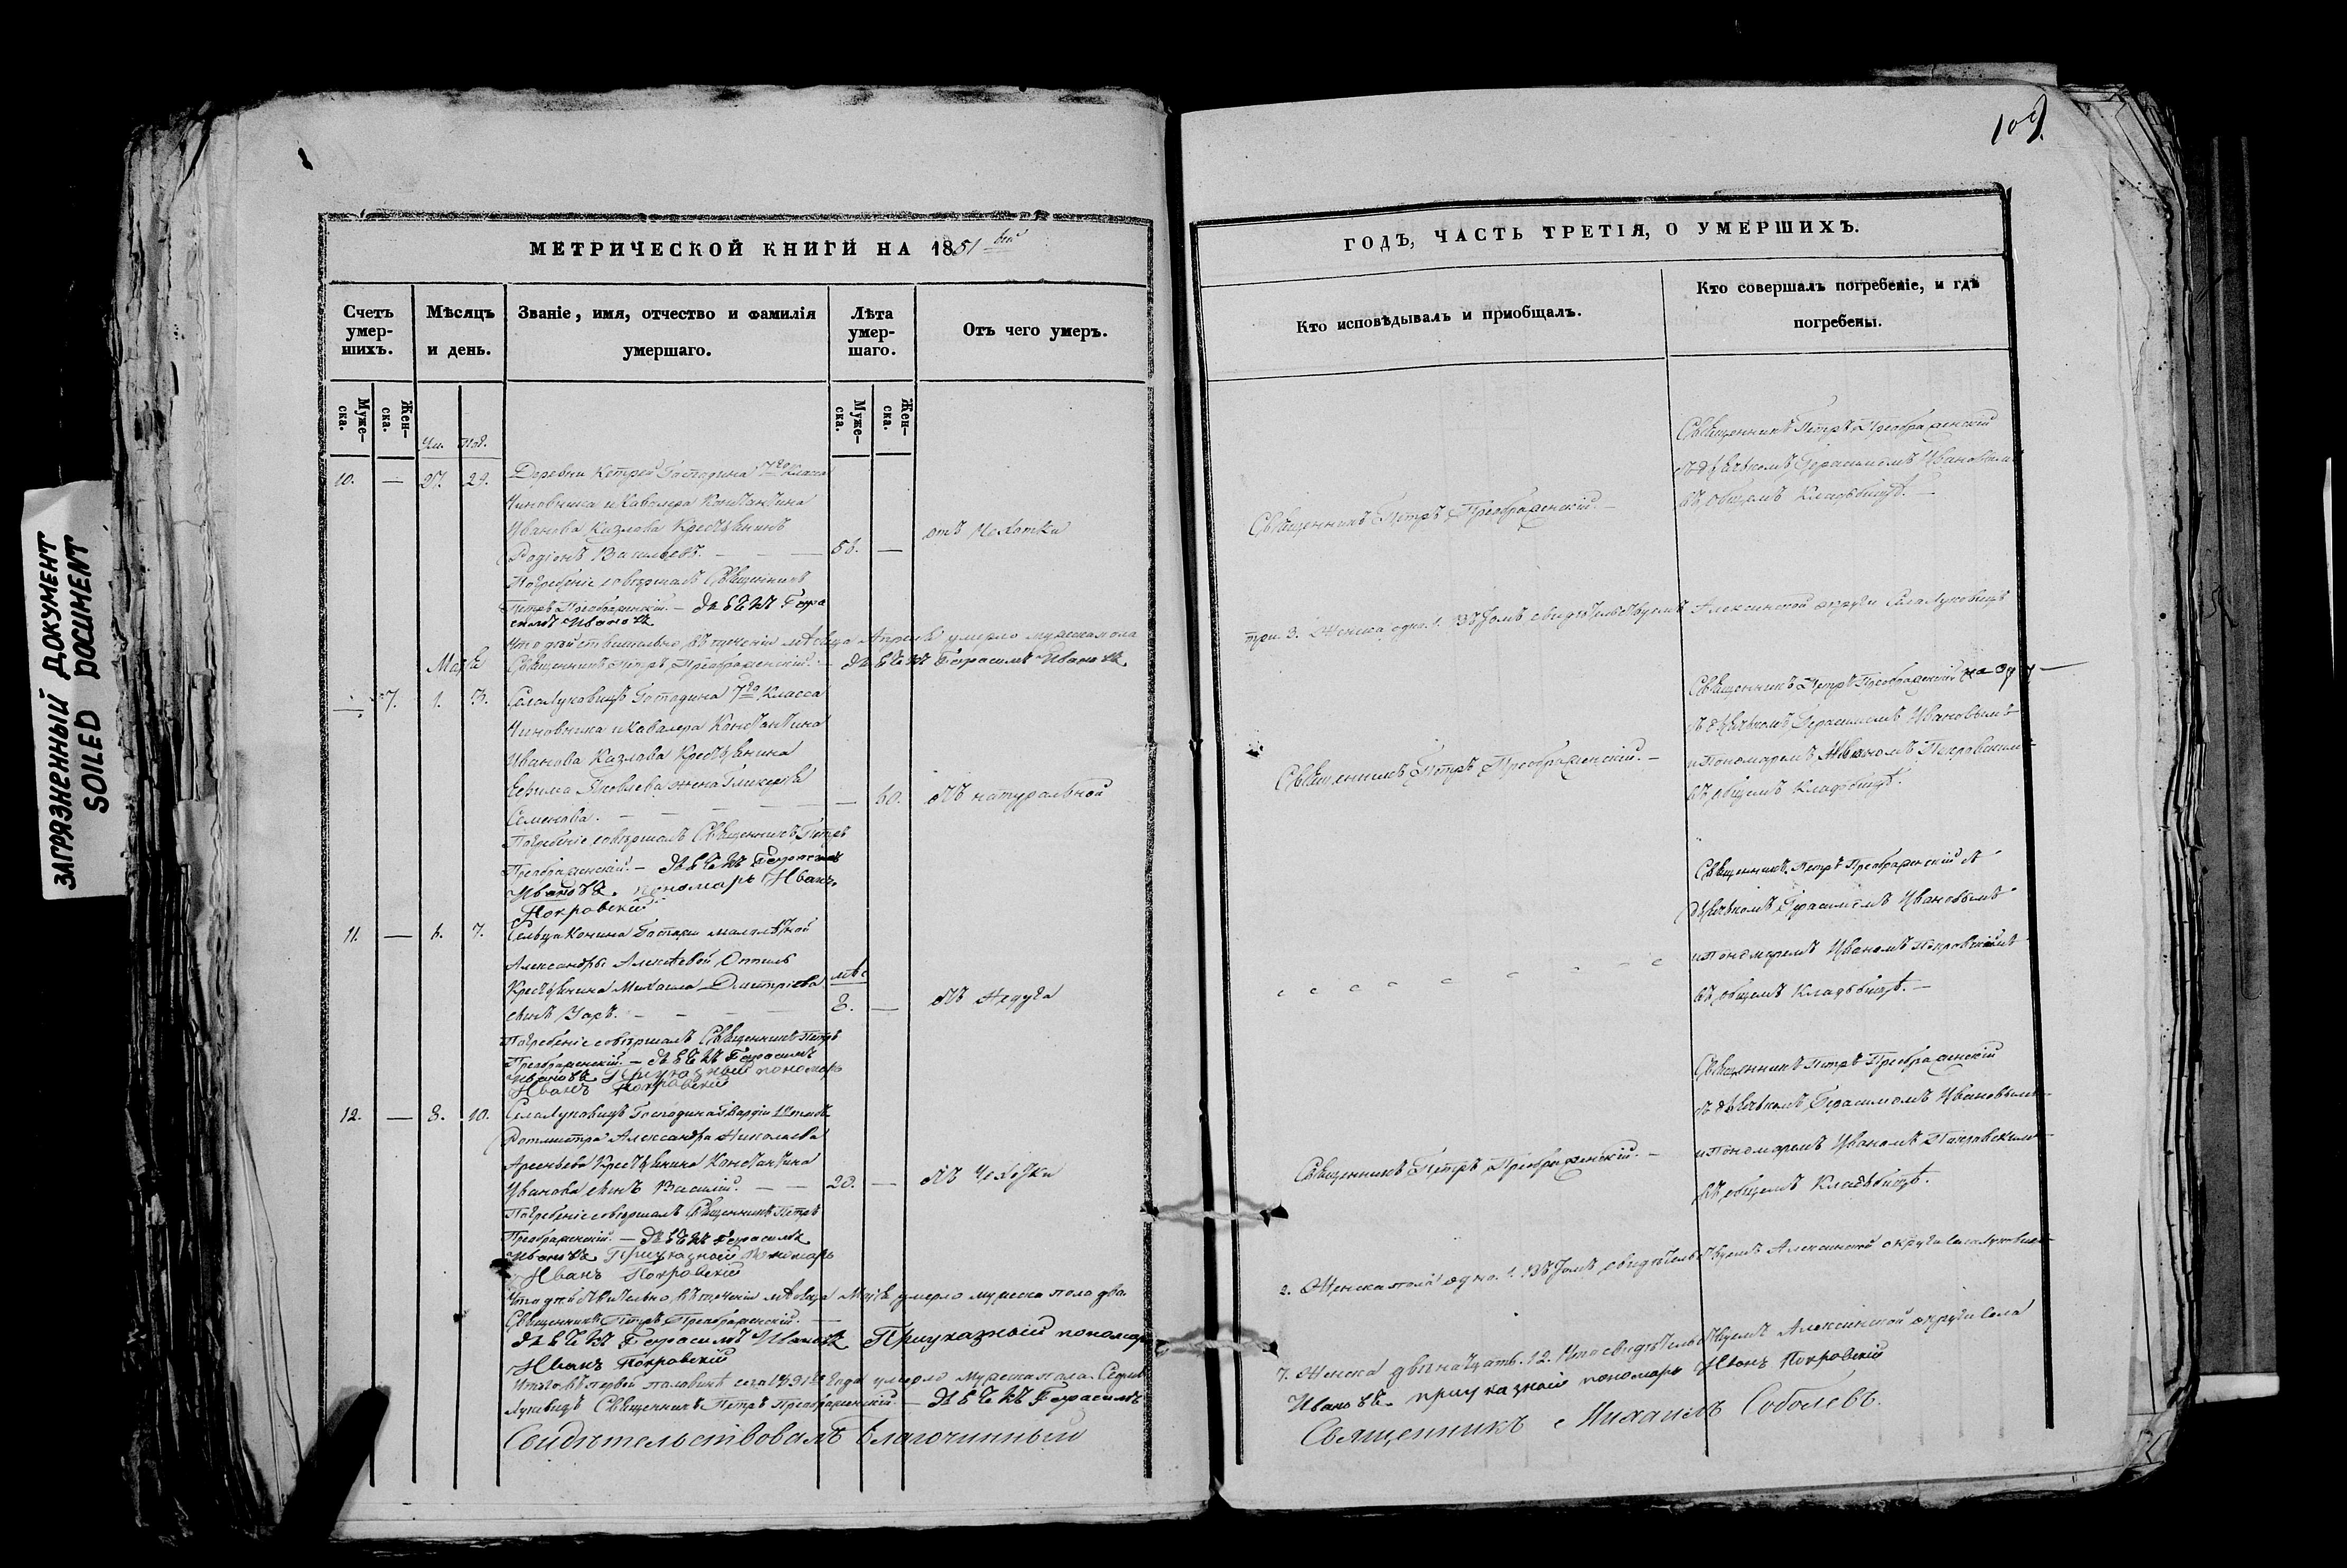 109.
ЗАГРЯЗНЕННЫЙ ДОКУМЕНТ
SOILED DOCUMENT
МЕТРИЧЕСКОЙ КНИГИ НА 1851
Счетъ умер-шихъ.
Мѣсяцъ и день.
Званіе, имя, отчество и фамилія умершаго.
Лѣта умер-шаго.
Отъ чего умеръ.
Муже-ска.
Жен-ска.
Ум. Пог.
Муже-ска.
Жен-ска.
10. — 27. 29. Деревни Господина 7го Класса
Чиновника и Кавалера Константина
Иванова Казлова Крестьянинъ
Родіонъ Васильевъ. — — — 56. — отъ Чехотки
Погребеніе совершалъ Священникъ
Петръ Преображенскій. — дьячекъ Гера
симъ Ивановъ
Что действительно въ теченіи месяца Апреля умерло мужеска пола
Маія Священникъ Петръ Преображенскій. — дьячекъ Герасимъ Ивановъ
— 7. 1. 3. Села Луковицъ Господина 7го Класса
Чиновника и Кавалера Константина
Иванова Казлова Крестьянина
Ефима Яковлева жена Гликерія
Семенова. — — — 60. отъ натуральной
Погребеніе совершалъ Священникъ Петръ
Преображенскій. — дьячекъ Герасимъ
Ивановъ. пономарь Иванъ
Покровскій
11. — 6. 7. Сельца Конина Госпожи малолѣтной
Александры Алексѣевой
Крестьянина Михаила Дмитріева мѣс
сынъ — — — 8. — отъ
Погребеніе совершалъ Священникъ Петръ
Преображенскій. — дьячекъ Герасимъ
Ивановъ Приуказный пономарь
Иванъ Покровскій
12. — 8. 10. Села Луковицъ Господина Гвардіи
Ротмистра Александра Николаева
Арсеньева Крестьянина Константина
Иванова сынъ Василій. — — 20. — отъ Чехотки
Погребеніе совершалъ Священникъ Петръ
Преображенскій. — дьячекъ Герасимъ
Ивановъ Приуказный пономарь
Иванъ Покровскій
Что действительно въ теченіи месяца Маія умерло мужеска пола два
Священникъ Петръ Преображенскій. —
дьячекъ Герасимъ Ивановъ Приуказный пономарь
Иванъ Покровскій
Итого въ первой половинѣ сего года умерло мужеска пола. Седмь
Луковицъ Священникъ Петръ Преображенскій. — дьячекъ Герасимъ
Свидѣтельствовалъ Благочинный
ГОДЪ, ЧАСТЬ ТРЕТІЯ, О УМЕРШИХЪ.
Кто исповѣдывалъ и пріобщалъ.
Кто совершалъ погребеніе, и гдѣ погребены.
Священникъ Петръ Преображенскій. —
Священникъ Петръ Преображенскій
съ дьячькомъ Герасимомъ Ивановымъ
въ общемъ Кладбищѣ. —
три. 3. Женска одна. 1. Въ томъ свидѣтельствуемъ Алексинской округи Села Луковицъ
Священникъ Петръ Преображенскій. —
Священникъ Петръ Преображенскій
съ дьячькомъ Герасимомъ Ивановымъ
и Пономаремъ Иваномъ Покровскимъ
въ общемъ Кладбищѣ.
Священникъ Петръ Преображенскій съ
дьячькомъ Герасимомъ Ивановымъ
и Пономаремъ Иваномъ Покровскимъ
въ общемъ Кладбищѣ. —
Священникъ Петръ Преображенскій. —
Священникъ Петръ Преображенскій
съ дьячькомъ Герасимомъ Ивановымъ
и Пономаремъ Иваномъ Покровскимъ
въ общемъ Кладбищѣ.
2. Женска пола одно. 1. Въ томъ свидѣтельствуемъ Алексинской округи Села Луковицъ
7. Женска двенатцать. 12. Что свидѣтельствуемъ Алексинской округи Села
Ивановъ. приуказный пономарь Иванъ Покровскій
Священникъ Михаилъ Соболевъ.